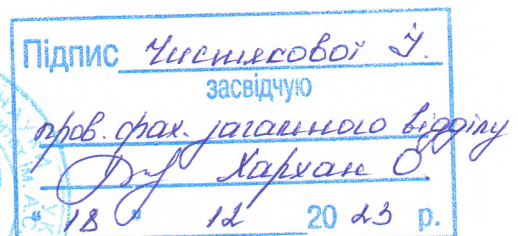 Підпис Чистякової І.
засвідчую
пров. фах. загального відділу
Хархан О
"18" 12 2023 р.